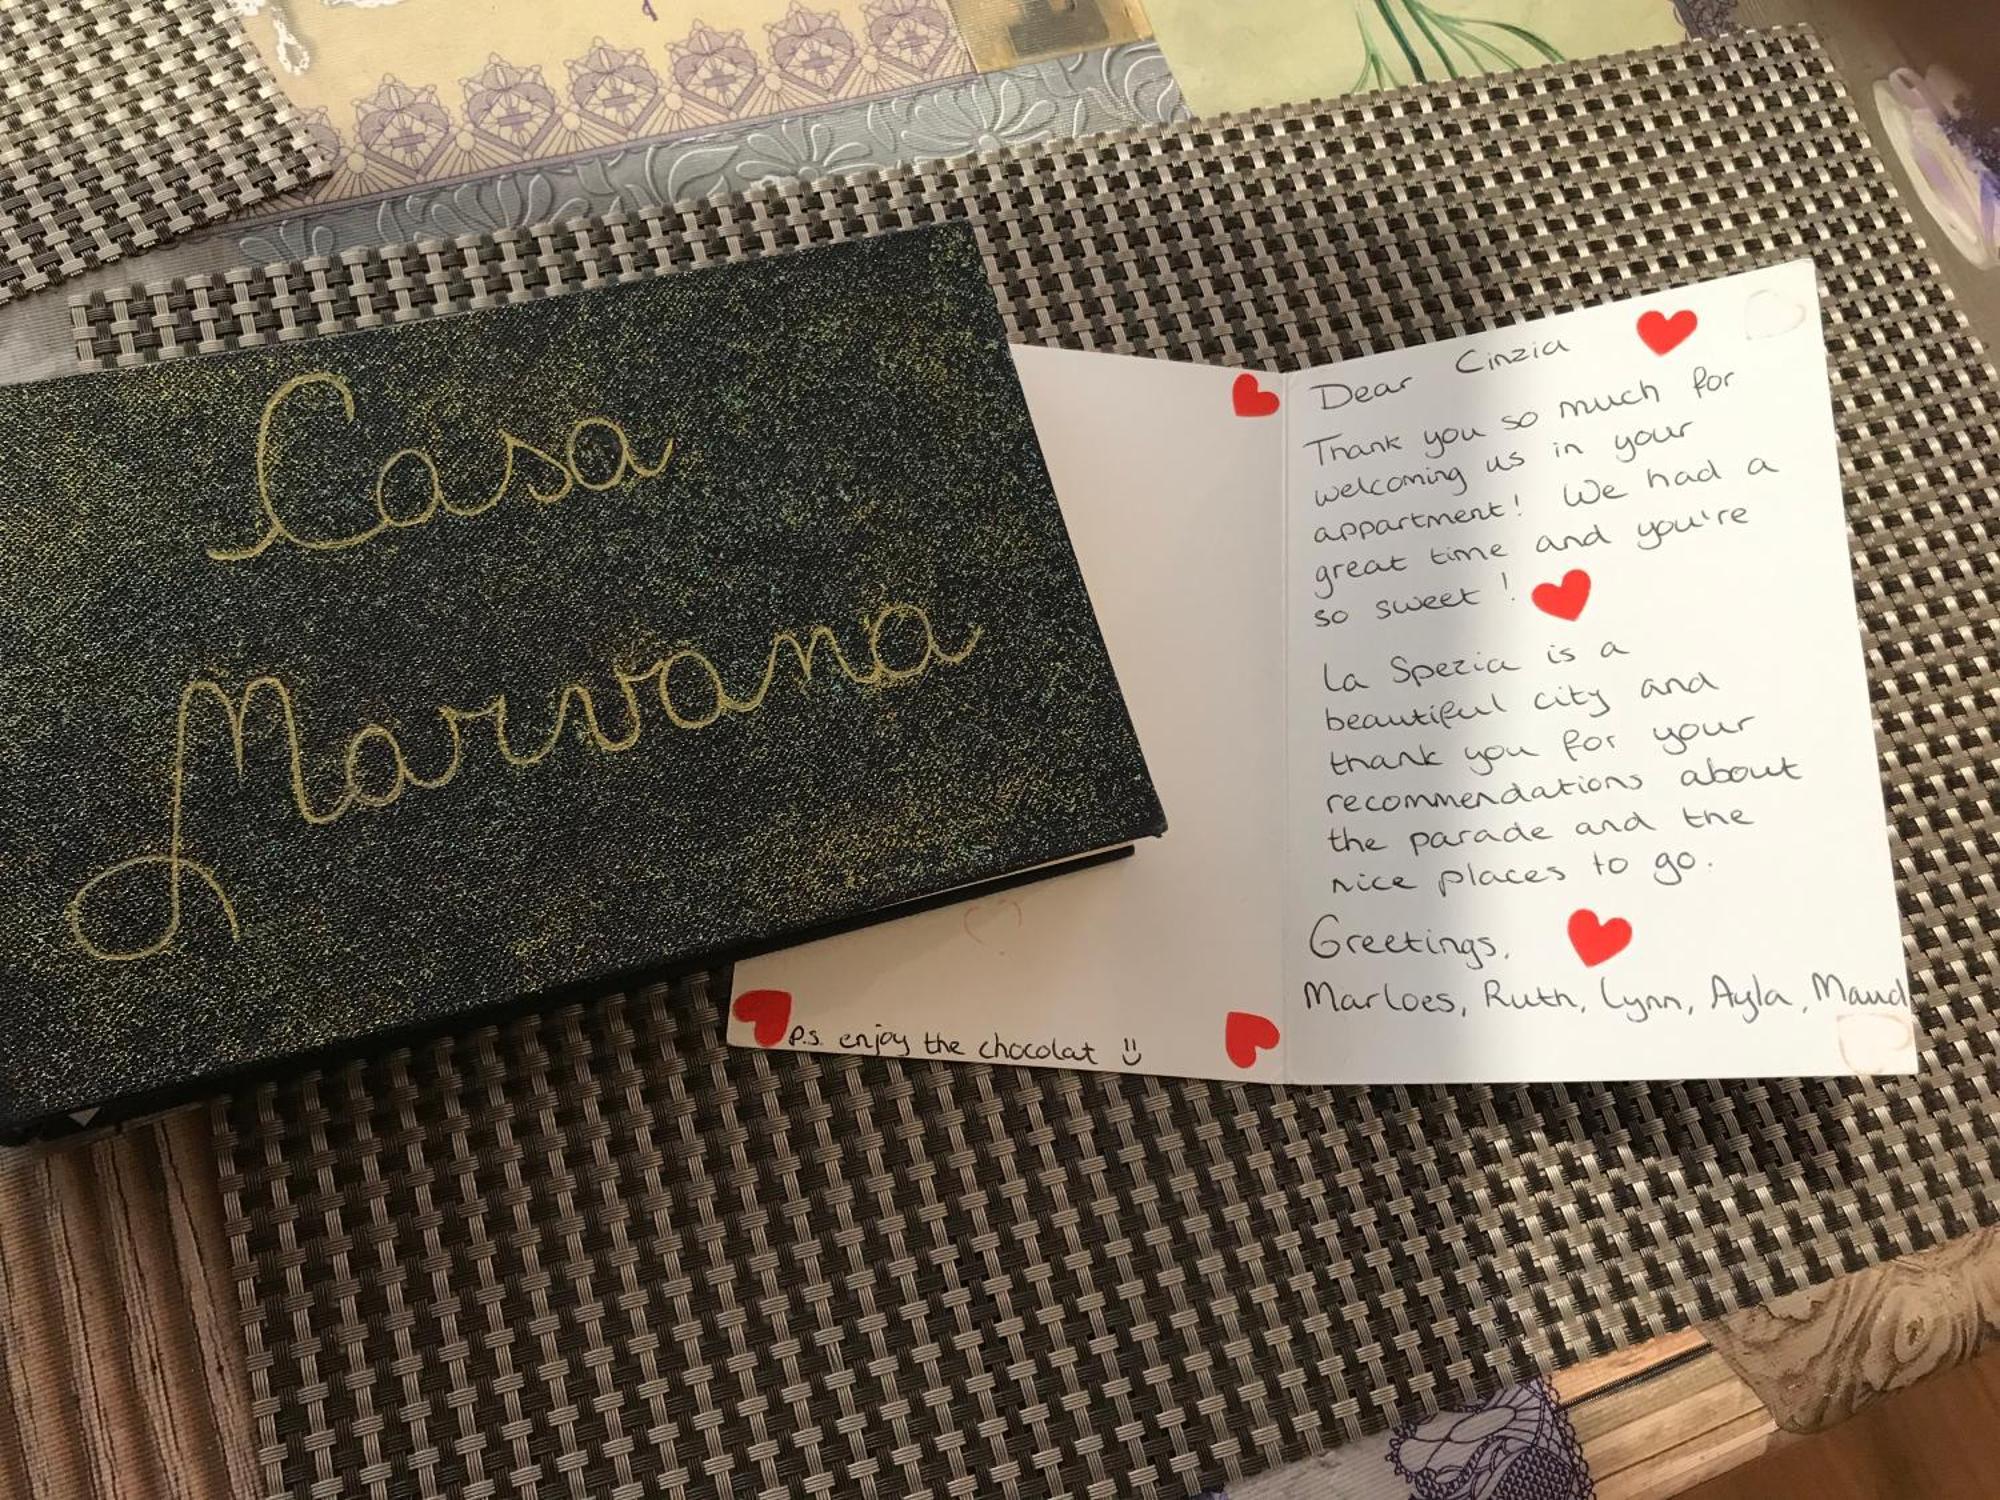 Casa
Marvana
Dear Cinzia
Thank you so much for
welcoming us in your
appartment! We had a
great time and you're
so sweet!
La Spezia is a
beautiful city and
thank you for your
recommendations about
the parade and the
nice places to go.
Greetings,
Marloes, Ruth, Lynn, Ayla, Maud
P.s. enjoy the chocolat